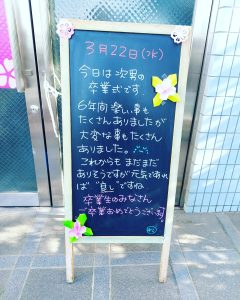 3月22日(水)
今日は次男の
卒業式です.
6年間 楽しい事も
たくさんありましたが
大変な事もたくさん
ありました。
これからも まだまだ
ありそうですが元気であれ
ば "良し"ですね
卒業生のみなさん
ご卒業おめでとうございます